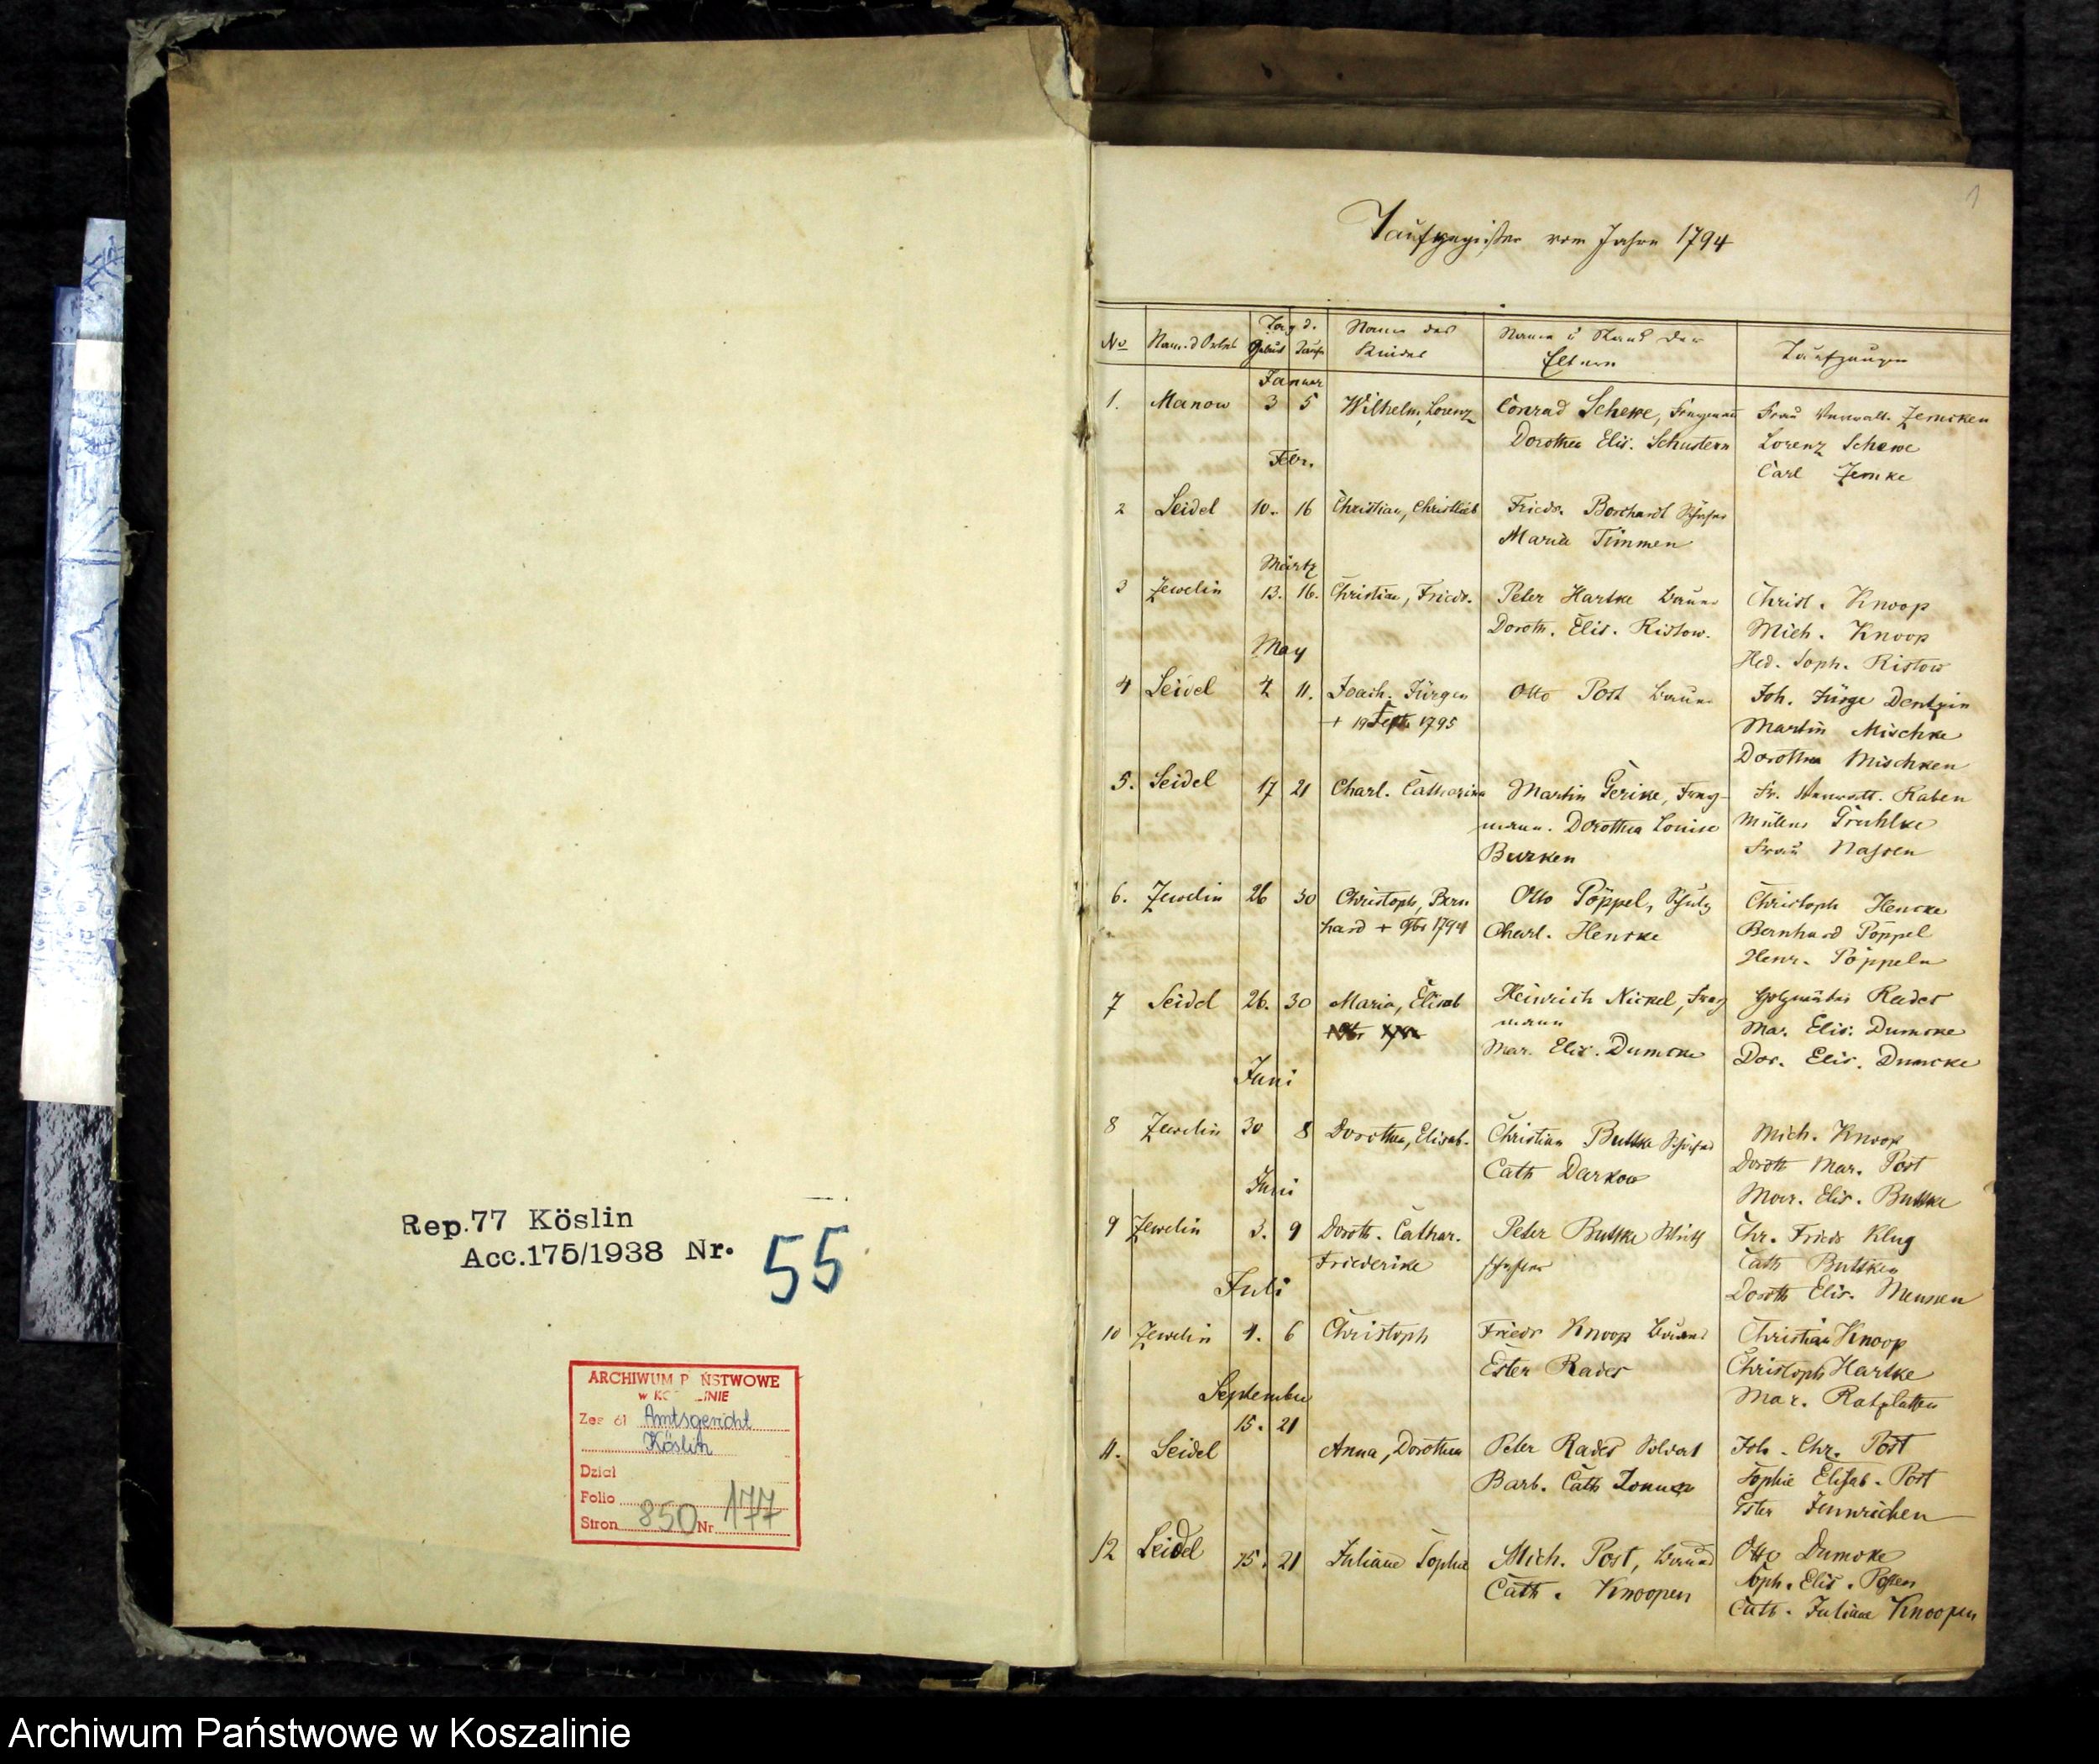 1
Taufregister vom Jahre 1794
No
Nam. d Ortes
Tag d.
Geburt
Taufe
Name des
Kindes
Name u Stand der
Eltern
Taufzeugen
Januar
1. Manow 3 5 Wilhelm, Lorenz Conrad Schewe, Frau Verwalt. Zemcken
Dorothea Elis. Schustern Lorenz Schewe
Carl Zemke
Febr.
2 Seidel 10. 16 Christian, Christlieb Friedr. Borchardt Schäfer
Maria Timmen
Märtz
3 Zewelin 13. 16. Christian, Friedr. Peter Hartke Bauer Christ. Knoop
Doroth. Elis. Ristow. Mich. Knoop
Hed. Soph. Ristow
May
4 Seidel 4 11. Joach. Jürgen Otto Post Bauer Joh. Jürge Dentzin
+ 19 Sept. 1795 Martin Mischke
Dorothea Mischken
5. Seidel 17 21 Charl. Catharina Martin Gerike, Frey- Fr. Verwalt. Raben
mann. Dorothea Louise Müller Gruhlke
Burken Frau Nassen
6. Zewelin 26 30 Christoph, Bern Otto Pöppel, Schulz Christoph Hencke
hard + 9br 1794 Charl. Hencke Bernhard Pöppel
Henr. Pöppeln
7 Seidel 26. 30 Maria, Elisab Heinrich Nickel, Frey Holzwärter Rades
mann Mar. Elis. Dumcke
Mar. Elis. Dumcke Dor. Elis. Dumcke
Juni
8 Zewelin 30 8 Dorothea, Elisab. Christian Buttke Schäfer Mich. Knoop
Cath Darkow Doroth Mar. Post
Mar. Elis. Buttke
Juni
9 Zewelin 3. 9 Doroth. Cathar. Peter Buttke Wirth Chr. Friedr Klug
Friederike schafter Cath Buttken
Doroth Elis. Mensen
Juli
10 Zewelin 4. 6 Christoph Friedr Knoop Bauer Christian Knoop
Ester Rades Christoph Hartke
Mar. Ratzlaffen
September
15. 21
11. Seidel Anna, Dorothea Peter Rades Soldat Joh. Chr. Post
Barb. Cath Sophie Elisab. Post
Ester Hinrichen
12 Seidel 15. 21 Juliane Sophie Mich. Post, Bauer Otto Dumcke
Cath. Knoopen Soph. Elis. Posten
Cath. Juliane Knoopen
Rep.77 Köslin
Acc.175/1938 Nr. 55
ARCHIWUM P ŃSTWOWE
w KO INIE
Zes 61 Amtsgericht
Köslin
Dział
Folio
Stron 850 Nr 177
Archiwum Państwowe w Koszalinie